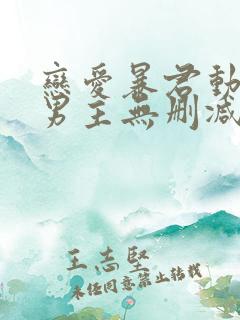 戀愛暴君動
男主無刪減
王志堅
未经同意禁止转载